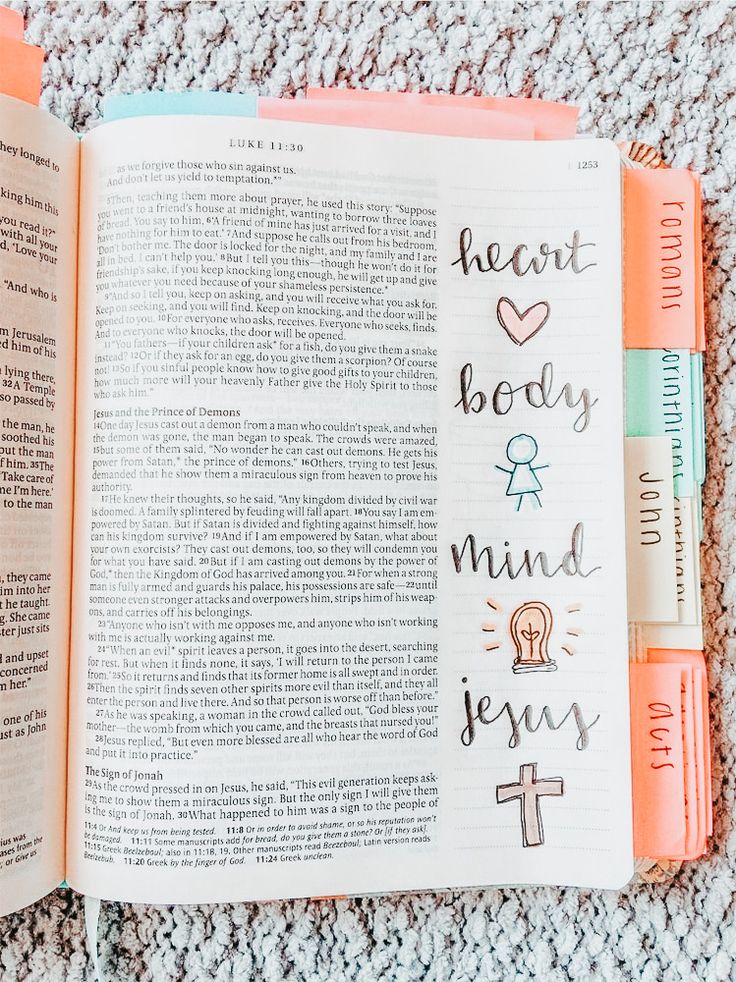 hey longed to
king him this
you read it?"
with all your
'Love your
"And who is
m Jerusalem
ed him of his
lying there,
32A Temple
so passed by
the man, he
soothed his
out the man
f him. 35The
'Take care of
me I'm here.'
to the man
, they came
im into her
t he taught.
g. She came
ster just sits
d and upset
concerned
m her."
one of his
ust as John
rius was
ases from the
; or Give us
LUKE 11:30
1253
as we forgive those who sin against us.
And don't let us yield to temptation.*"
5Then, teaching them more about prayer, he used this story: "Suppose
you went to a friend's house at midnight, wanting to borrow three loaves
of bread. You say to him, 6'A friend of mine has just arrived for a visit, and I
have nothing for him to eat.' 7And suppose he calls out from his bedroom,
'Don't bother me. The door is locked for the night, and my family and I are
all in bed. I can't help you.' 8But I tell you this—though he won't do it for
friendship's sake, if you keep knocking long enough, he will get up and give
you whatever you need because of your shameless persistence.*
9"And so I tell you, keep on asking, and you will receive what you ask for.
Keep on seeking, and you will find. Keep on knocking, and the door will be
opened to you. 10For everyone who asks, receives. Everyone who seeks, finds.
And to everyone who knocks, the door will be opened.
11"You fathers—if your children ask* for a fish, do you give them a snake
instead? 12Or if they ask for an egg, do you give them a scorpion? Of course
not! 13So if you sinful people know how to give good gifts to your children,
how much more will your heavenly Father give the Holy Spirit to those
who ask him."
Jesus and the Prince of Demons
14One day Jesus cast out a demon from a man who couldn't speak, and when
the demon was gone, the man began to speak. The crowds were amazed,
15but some of them said, "No wonder he can cast out demons. He gets his
power from Satan,* the prince of demons." 16Others, trying to test Jesus,
demanded that he show them a miraculous sign from heaven to prove his
authority.
17He knew their thoughts, so he said, "Any kingdom divided by civil war
is doomed. A family splintered by feuding will fall apart. 18You say I am em-
powered by Satan. But if Satan is divided and fighting against himself, how
can his kingdom survive? 19And if I am empowered by Satan, what about
your own exorcists? They cast out demons, too, so they will condemn you
for what you have said. 20But if I am casting out demons by the power of
God,* then the Kingdom of God has arrived among you. 21For when a strong
man is fully armed and guards his palace, his possessions are safe—22until
someone even stronger attacks and overpowers him, strips him of his weap-
ons, and carries off his belongings.
23"Anyone who isn't with me opposes me, and anyone who isn't working
with me is actually working against me.
24"When an evil* spirit leaves a person, it goes into the desert, searching
for rest. But when it finds none, it says, 'I will return to the person I came
from.' 25So it returns and finds that its former home is all swept and in order.
26Then the spirit finds seven other spirits more evil than itself, and they all
enter the person and live there. And so that person is worse off than before."
27As he was speaking, a woman in the crowd called out, "God bless your
mother—the womb from which you came, and the breasts that nursed you!"
28Jesus replied, "But even more blessed are all who hear the word of God
and put it into practice."
The Sign of Jonah
29As the crowd pressed in on Jesus, he said, "This evil generation keeps ask-
ing me to show them a miraculous sign. But the only sign I will give them
is the sign of Jonah. 30What happened to him was a sign to the people of
11:4 Or And keep us from being tested. 11:8 Or in order to avoid shame, or so his reputation won't
be damaged. 11:11 Some manuscripts add for bread, do you give them a stone? Or [if they ask].
11:15 Greek Beelzeboul; also in 11:18, 19. Other manuscripts read Beezeboul; Latin version reads
Beelzebub. 11:20 Greek by the finger of God. 11:24 Greek unclean.
heart
body
mind
jesus
romans
corinthians
John
rinthians
acts